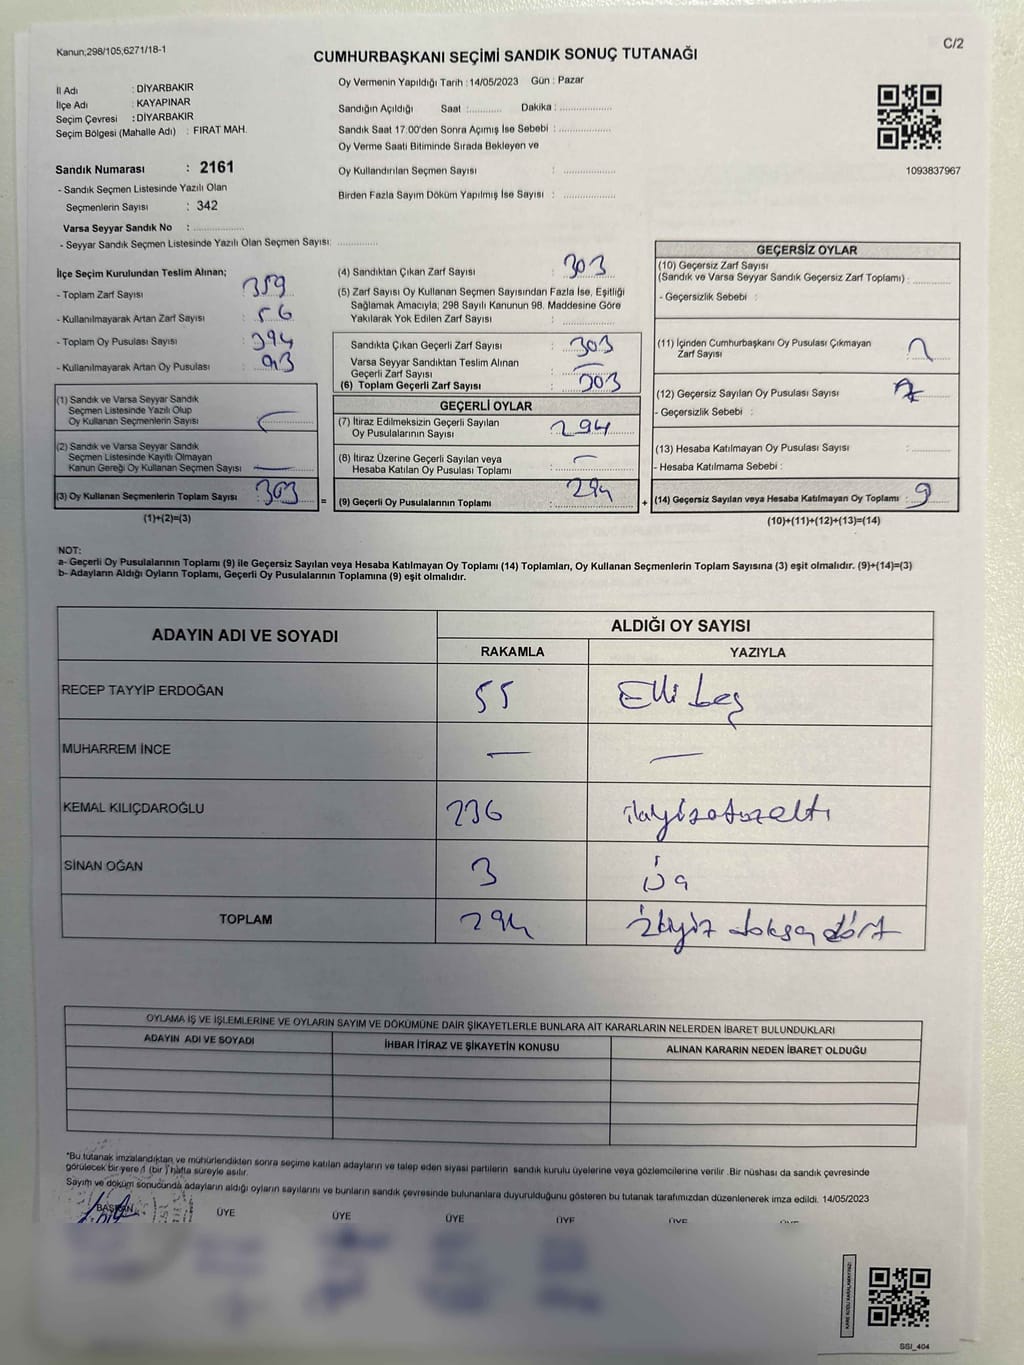 Kanun;298/105;6271/18-1
C/2
CUMHURBAŞKANI SEÇİMİ SANDIK SONUÇ TUTANAĞI
İl Adı : DİYARBAKIR
İlçe Adı : KAYAPINAR
Seçim Çevresi : DİYARBAKIR
Seçim Bölgesi (Mahalle Adı) : FIRAT MAH.
Sandık Numarası : 2161
- Sandık Seçmen Listesinde Yazılı Olan
Seçmenlerin Sayısı : 342
Varsa Seyyar Sandık No : ................
- Seyyar Sandık Seçmen Listesinde Yazılı Olan Seçmen Sayısı: ............
Oy Vermenin Yapıldığı Tarih :14/05/2023 Gün : Pazar
Sandığın Açıldığı Saat :.......... Dakika : ................
Sandık Saat 17:00'den Sonra Açımış İse Sebebi : ................
Oy Verme Saati Bitiminde Sırada Bekleyen ve
Oy Kullandırılan Seçmen Sayısı : ................
Birden Fazla Sayım Döküm Yapılmış İse Sayısı : ................
1093837967
İlçe Seçim Kurulundan Teslim Alınan;
- Toplam Zarf Sayısı : 359
- Kullanılmayarak Artan Zarf Sayısı : 56
- Toplam Oy Pusulası Sayısı : 394
- Kullanılmayarak Artan Oy Pusulası :
(1) Sandık ve Varsa Seyyar Sandık
Seçmen Listesinde Yazılı Olup
Oy Kullanan Seçmenlerin Sayısı :
(2) Sandık ve Varsa Seyyar Sandık
Seçmen Listesinde Kayıtlı Olmayan
Kanun Gereği Oy Kullanan Seçmen Sayısı : —
(3) Oy Kullanan Seçmenlerin Toplam Sayısı : 303
(1)+(2)=(3)
=
(4) Sandıktan Çıkan Zarf Sayısı : 303
(5) Zarf Sayısı Oy Kullanan Seçmen Sayısından Fazla İse, Eşitliği
Sağlamak Amacıyla, 298 Sayılı Kanunun 98. Maddesine Göre
Yakılarak Yok Edilen Zarf Sayısı : ................
Sandıkta Çıkan Geçerli Zarf Sayısı : 303
Varsa Seyyar Sandıktan Teslim Alınan
Geçerli Zarf Sayısı : —
(6) Toplam Geçerli Zarf Sayısı : 303
GEÇERLİ OYLAR
(7) İtiraz Edilmeksizin Geçerli Sayılan
Oy Pusulalarının Sayısı : 294
(8) İtiraz Üzerine Geçerli Sayılan veya
Hesaba Katılan Oy Pusulası Toplamı : —
(9) Geçerli Oy Pusulalarının Toplamı : 294
+
GEÇERSİZ OYLAR
(10) Geçersiz Zarf Sayısı
(Sandık ve Varsa Seyyar Sandık Geçersiz Zarf Toplamı) : ............
- Geçersizlik Sebebi :
(11) İçinden Cumhurbaşkanı Oy Pusulası Çıkmayan
Zarf Sayısı :
(12) Geçersiz Sayılan Oy Pusulası Sayısı :
- Geçersizlik Sebebi :
(13) Hesaba Katılmayan Oy Pusulası Sayısı : ............
- Hesaba Katılmama Sebebi :
(14) Geçersiz Sayılan veya Hesaba Katılmayan Oy Toplamı : 9
(10)+(11)+(12)+(13)=(14)
NOT:
a- Geçerli Oy Pusulalarının Toplamı (9) ile Geçersiz Sayılan veya Hesaba Katılmayan Oy Toplamı (14) Toplamları, Oy Kullanan Seçmenlerin Toplam Sayısına (3) eşit olmalıdır. (9)+(14)=(3)
b- Adayların Aldığı Oyların Toplamı, Geçerli Oy Pusulalarının Toplamına (9) eşit olmalıdır.
ADAYIN ADI VE SOYADI
ALDIĞI OY SAYISI
RAKAMLA YAZIYLA
RECEP TAYYİP ERDOĞAN 55 Elli beş
MUHARREM İNCE — —
KEMAL KILIÇDAROĞLU 236 ikiyüzotuzaltı
SİNAN OĞAN 3 Üç
TOPLAM 294 ikiyüz doksan dört
OYLAMA İŞ VE İŞLEMLERİNE VE OYLARIN SAYIM VE DÖKÜMÜNE DAİR ŞİKAYETLERLE BUNLARA AİT KARARLARIN NELERDEN İBARET BULUNDUKLARI
ADAYIN ADI VE SOYADI İHBAR İTİRAZ VE ŞİKAYETİN KONUSU ALINAN KARARIN NEDEN İBARET OLDUĞU
*Bu tutanak imzalandıktan ve mühürlendikten sonra seçime katılan adayların ve talep eden siyasi partilerin sandık kurulu üyelerine veya gözlemcilerine verilir .Bir nüshası da sandık çevresinde
görülecek bir yere 1 (bir ) hafta süreyle asılır.
Sayım ve döküm sonucunda adayların aldığı oyların sayılarını ve bunların sandık çevresinde bulunanlara duyurulduğunu gösteren bu tutanak tarafımızdan düzenlenerek imza edildi. 14/05/2023
BAŞKAN ÜYE ÜYE ÜYE ÜYE ÜYE
SSI_404